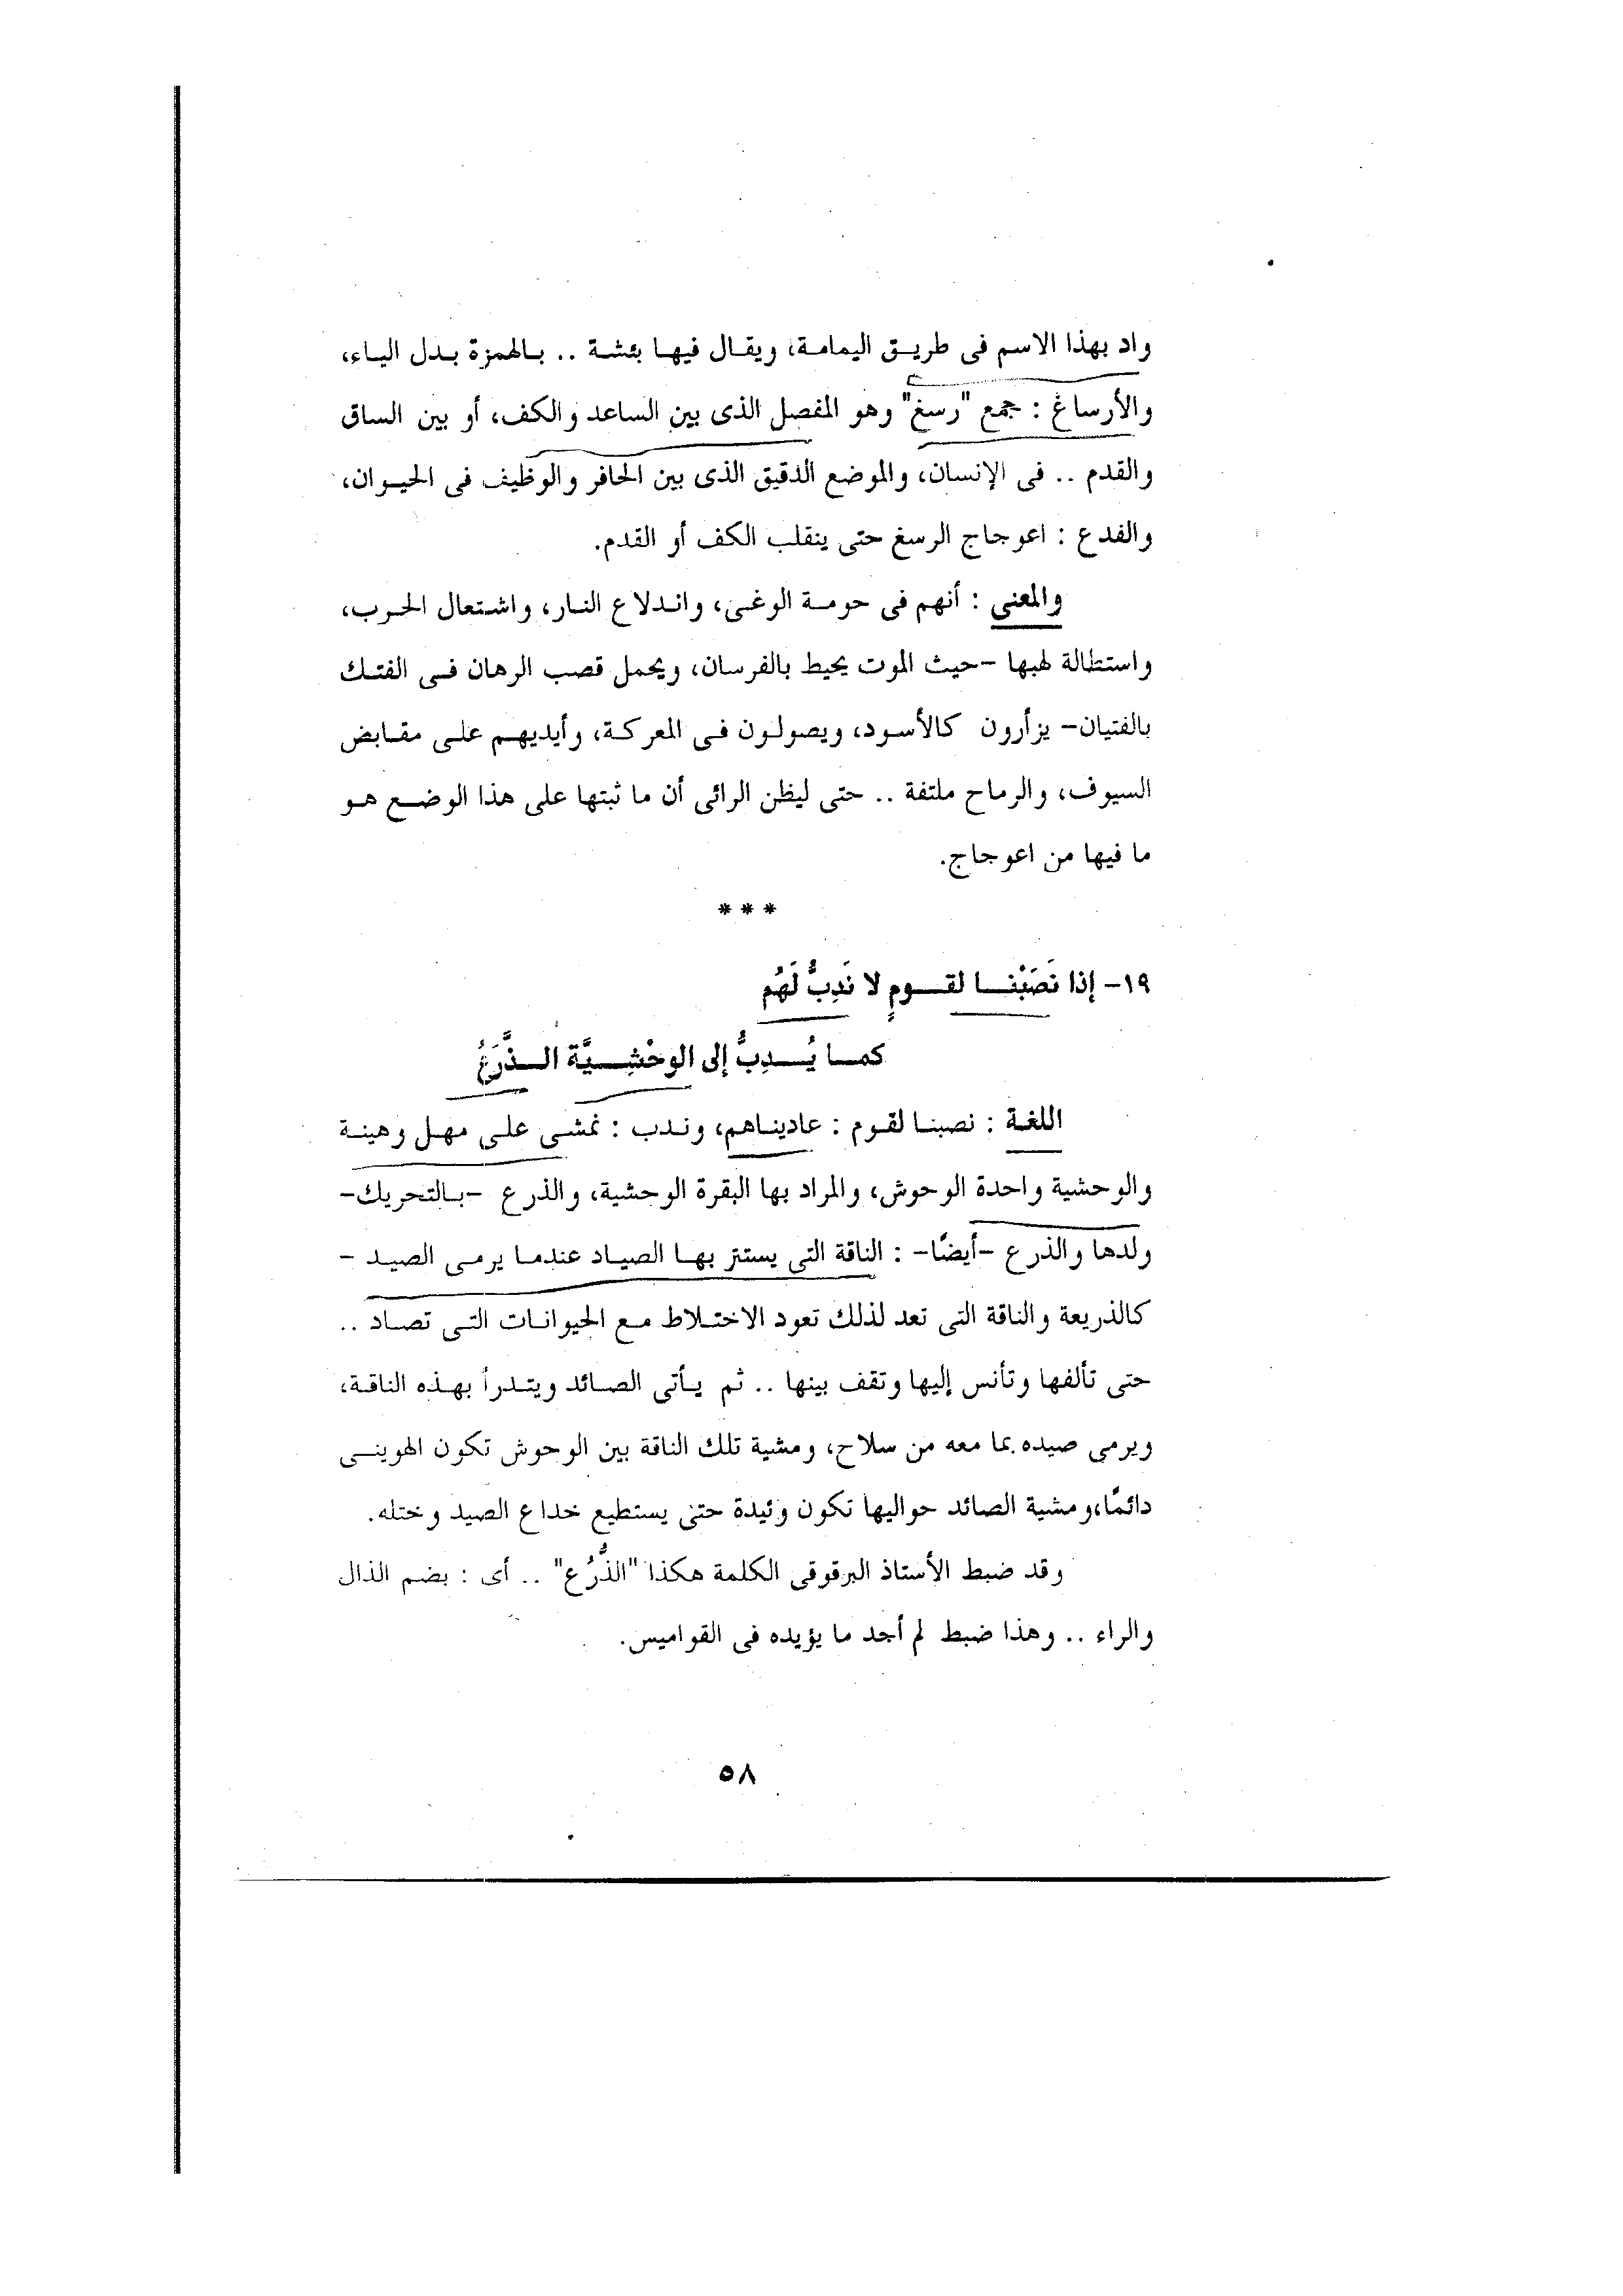 واد بهذا الاسم فى طريق اليمامة، ويقال فيها بئشة .. بالهمزة بدل الياء،
والأرساغ : جمع "رسغ" وهو المفصل الذى بين الساعد والكف، أو بين الساق
والقدم .. فى الإنسان، والموضع الدقيق الذى بين الحافر والوظيف فى الحيوان،
والفدع : اعوجاج الرسغ حتى ينقلب الكف أو القدم.
والمعنى : أنهم فى حومة الوغى، واندلاع النار، واشتعال الحرب،
واستطالة لهبها -حيث الموت يحيط بالفرسان، ويحمل قصب الرهان فى الفتك
بالفتيان- يزأرون كالأسود، ويصولون فى المعركة، وأيديهم على مقابض
السيوف، والرماح ملتفة .. حتى ليظن الرائى أن ما ثبتها على هذا الوضع هو
ما فيها من اعوجاج.
***
١٩- إذا نَصَبْنا لقومٍ لا نَدِبُّ لَهُم
كما يُدِبُّ إلى الوحْشِيَّة الذَّرَعُ
اللغة : نصبنا لقوم : عاديناهم، وندب : نمشى على مهل وهينة
والوحشية واحدة الوحوش، والمراد بها البقرة الوحشية، والذرع -بالتحريك-
ولدها والذرع -أيضًا- : الناقة التى يستتر بها الصياد عندما يرمى الصيد -
كالذريعة والناقة التى تعد لذلك تعود الاختلاط مع الحيوانات التى تصاد ..
حتى تألفها وتأنس إليها وتقف بينها .. ثم يأتى الصائد ويتدرأ بهذه الناقة،
ويرمى صيده بما معه من سلاح، ومشية تلك الناقة بين الوحوش تكون الهوينى
دائمًا،ومشية الصائد حواليها تكون وئيدة حتى يستطيع خداع الصيد وختله.
وقد ضبط الأستاذ البرقوقى الكلمة هكذا "الذُّرُع" .. أى : بضم الذال
والراء .. وهذا ضبط لم أجد ما يؤيده فى القواميس.
٥٨